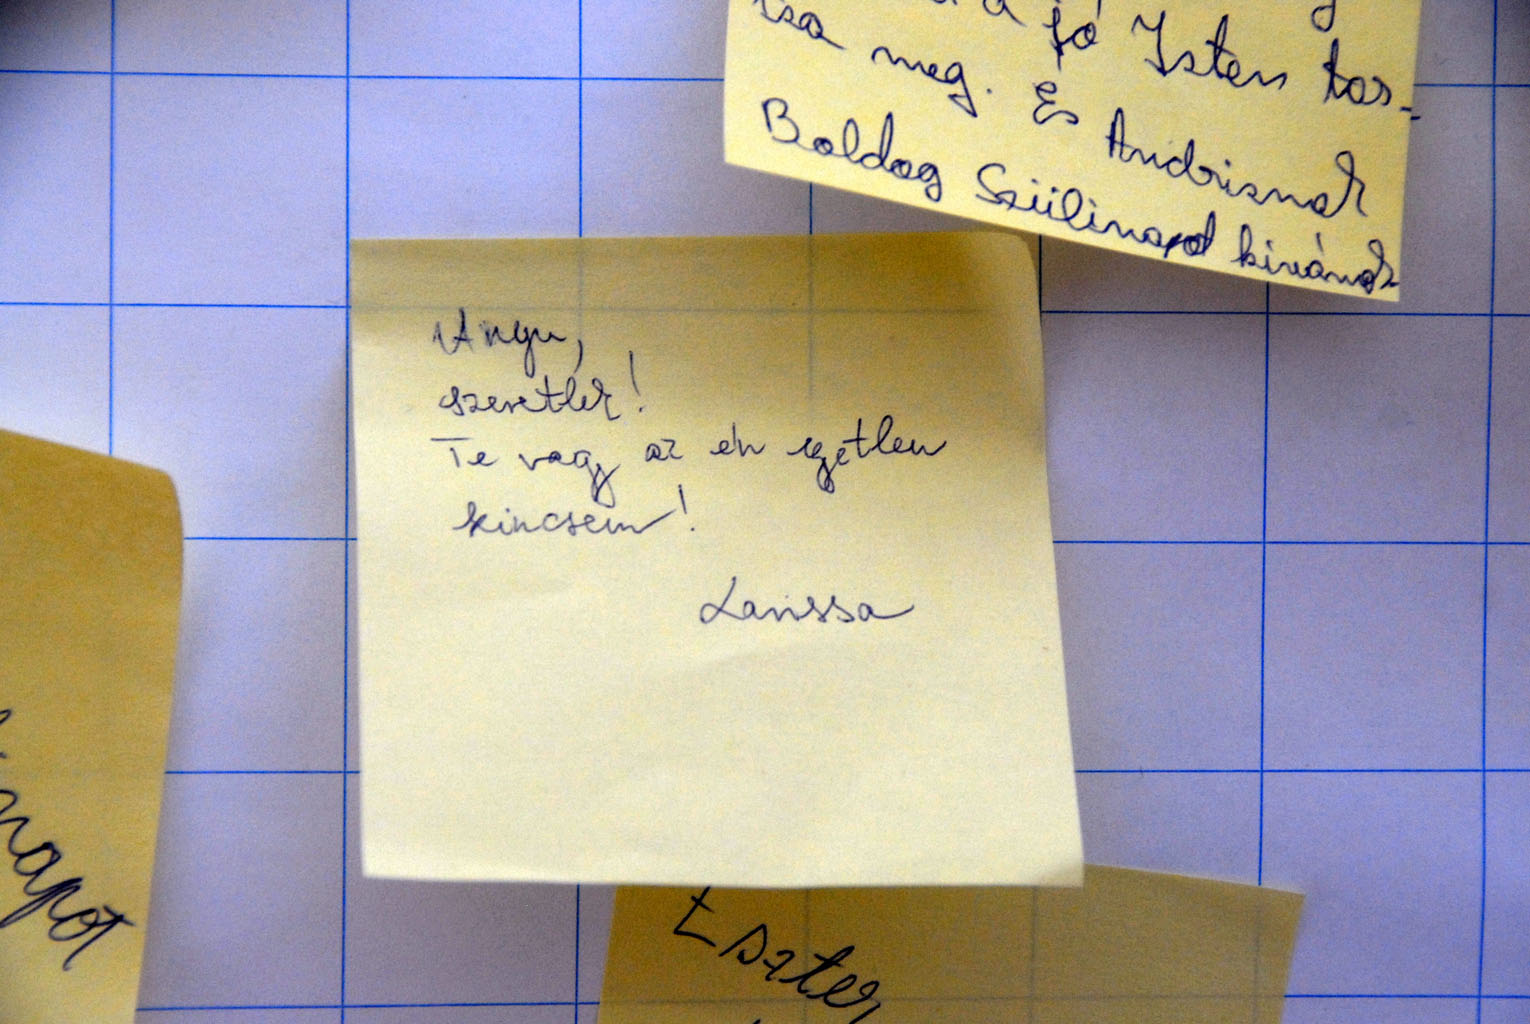 a jó Isten tar-
tsa meg. És Andrisnak
Boldog Szülinapot kívánok
Anyu,
szeretlek!
Te vagy az én egyetlen
kincsem!
Larissa
napot
Eszter